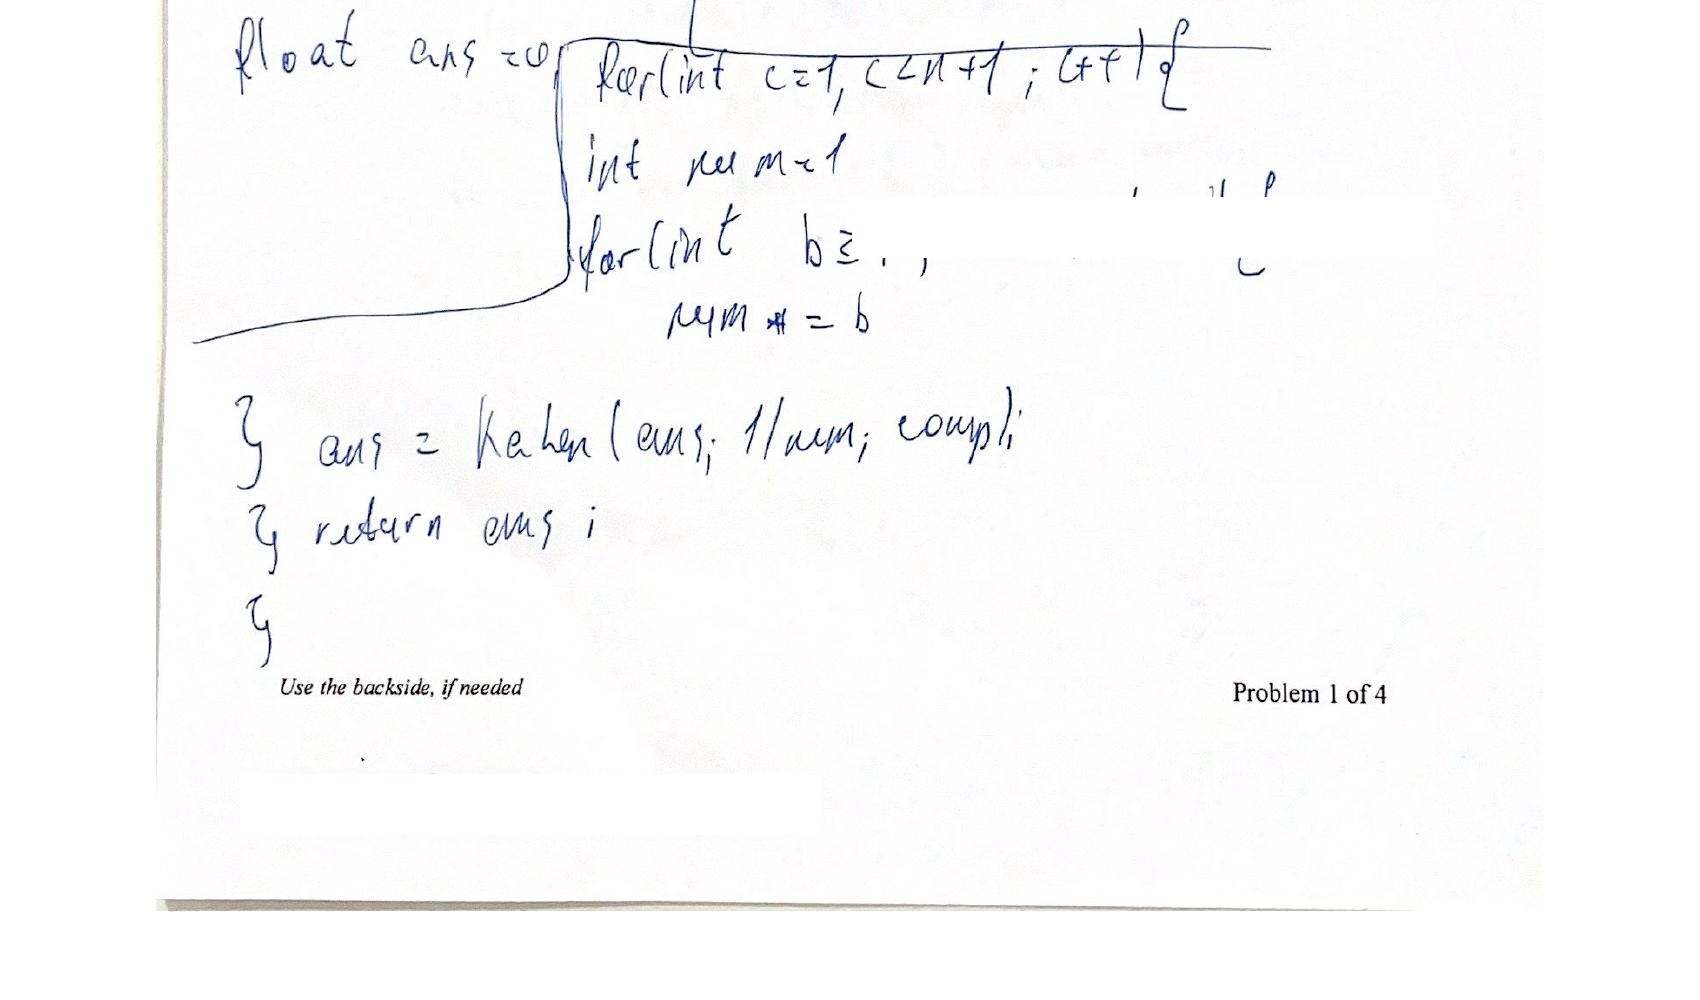 float ans =0;
for(int c=1, c<n+1 ; c++) {
int num=1
for(int b=
num *= b
} ans = Kahen(ans; 1/num; comp);
} return ans ;
}
Use the backside, if needed
Problem 1 of 4